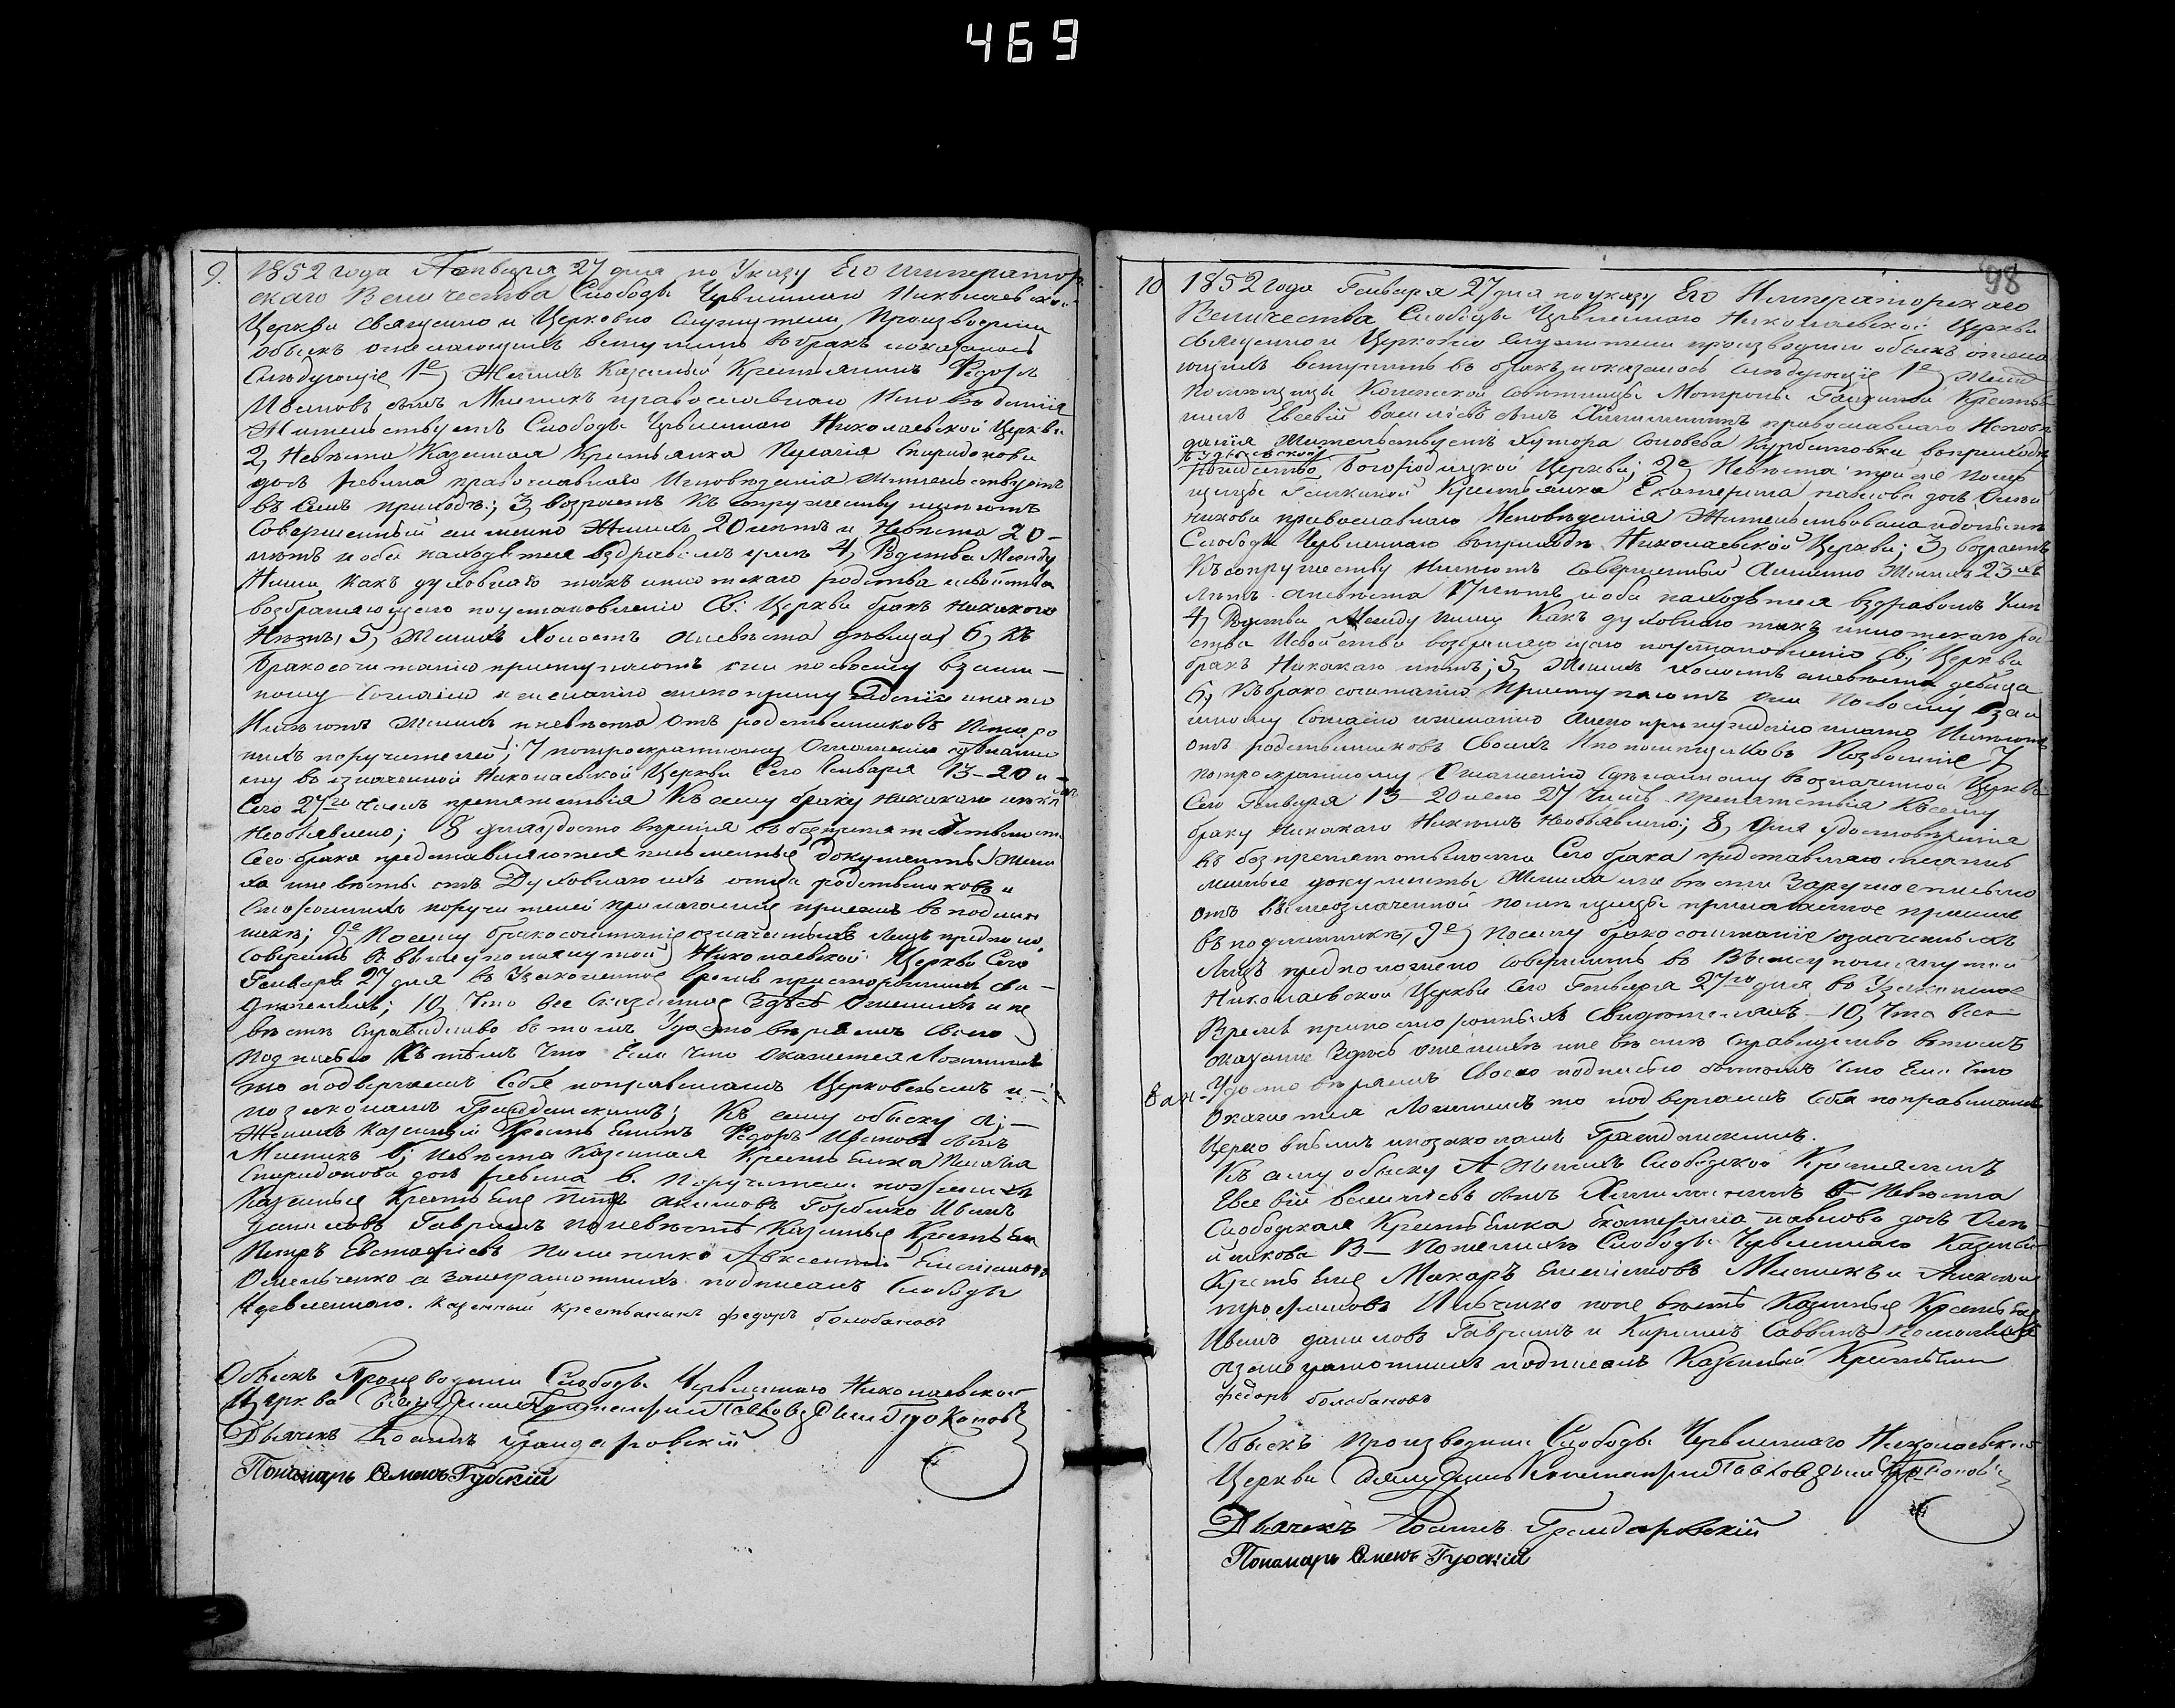 469
9. 1852 года Генваря 27 дня по Указу Его Император
скаго Величества Слободы Червленаго Николаевской
Церкви священно и Церковно служители Производили
обыскъ о желающихъ вступить въ бракъ и оказалось
Слѣдующіе 1е) Женихъ Казенный Крестьянинъ Федоръ
Ивановъ сынъ Мисникъ православнаго Исповѣданія
Жительствуетъ Слободы Червленаго Николаевской Церкви
2) Невѣста Казенная Крестьянка Пелагія Спиридонова
дочь православнаго Исповѣданія жительствуетъ
въ семъ приходѣ; 3) возрастъ къ супружеству имѣютъ
Совершенный а именно Женихъ 20 лѣтъ и Невѣста 20-
лѣтъ и оба находятся въ здравомъ умѣ 4) Родства Между
Ними какъ духовнаго такъ и плотскаго родства и свойства
возбраняющаго по установленію Св: Церкви бракъ никакого
Нѣтъ, 5) Женихъ Холостъ а невѣста дѣвица, 6) Къ
Бракосочетанію приступаютъ они по своему взаим-
ному Согласію и желанію а не по принужденію и на то
Имѣютъ Женихъ и невѣста отъ родственниковъ и сторо
нихъ поручителей; 7 по троекратному Оглашенію сдѣланно
му въ означенной Николаевской Церкви Сего Генваря 13-20 и-
Сего 27го числъ препятствія Къ сему браку никакого никѣмъ
Необъявлено; 8 для удостовѣренія въ безпрепятственности
Сего брака представляются письменные документы Жени
ха и невѣсты отъ Духовнаго ихъ отца родственниковъ и
Стороннихъ поручителей прилагаемые при семъ въ подлин
никѣ; 9е) По сему бракосочетаніе означенныхъ Лицъ предполо
Совершить въ вышеупомянутой Николаевской Церкви Сего
Генваря 27 дня въ Узаконенное время при стороннихъ сви-
дѣтеляхъ; 10) Что все Сказанное Здѣсь О женихѣ и не
вѣстѣ Справедливо въ томъ Удостовѣряемъ своею
подписью съ тѣмъ Что Если что окажется Ложнымъ
то подвергаемъ Себя по правиламъ Церковнымъ и-
по законамъ Гражданскимъ; Къ сему обыску а; -
Женихъ казенный Крестьянинъ Федоръ Ивановъ сынъ
Мисникъ б; Невѣста Казенная Крестьянка Пелагія
Спиридонова дочь в. Поручители по женихѣ
Казенные Крестьяне Петръ Акимовъ Горбенко Иванъ
Даниловъ Гавришъ по невѣстѣ Казенные Крестьяне
Петръ Евстафіевъ Авксентій Емельяновъ
Омельченко а за неграмотныхъ подписалъ Слободы
Червленаго. Казенный крестьянинъ федоръ болобановъ
Обыскъ Производили Слободы Червленаго Николаевской
Церкви Священникъ
Дьячекъ Іоаннъ Грандаровскій
Пономарь Семенъ Губскій
98
10 1852 года Генваря 27 дня по указу Его Императорскаго
Величества Слободы Червленнаго Николаевской Церкви
священно и Церковно служители производили обыскъ о жела
ющихъ вступить въ бракъ и оказалось слѣдующіе 1е) Жених
Помѣщицы Матроны Галкиной Крестья
нинъ Евсевій Васильевъ сынъ православнаго Исповѣ
данія Жительствуетъ Хутора въ приходѣ
Богородицкой Церкви; 2е) Невѣста той же Помѣ
щицы Галкиной Крестьянка Екатерина павлова дочь Олей
никова православнаго Исповѣданія Жительствовала
Слободы Червленнаго въ приходѣ Николаевской Церкви; 3) возрастъ
Къ супружеству Имѣютъ Совершенный А именно Женихъ 23хъ
Лѣтъ а невѣста 17 лѣтъ и оба находятся въ здравомъ умѣ
4) Родства Между Ними Какъ духовнаго такъ и плотскаго род
ства и свойства возбраняющаго по установленію Св; Церкви
бракъ Никакаго нѣтъ; 5) Женихъ Холостъ а невѣста дѣвица
6) Къ бракосочетанію Приступаютъ они По своему Взаи
мному Согласію и желанію а не по принужденію и на то Имѣютъ
отъ родственниковъ Своихъ И помѣщиковъ Позволеніе 7)
По троекратному Оглашенію сдѣланному въ означенной Церкви
Сего Генваря 13-20 и сего 27 числъ Препятствія Къ сему
браку Никакаго Никѣмъ Необъявлено; 8) Для удостовѣренія
въ безпрепятственности Сего брака представляются пись
менные документы Жениха и невѣсты Заручное письмо
отъ вышеозначенной помѣщицы прилагаемое при семъ
въ подлинникѣ, 9е) По сему бракосочетаніе означенныхъ
Лицъ предположено совершить въ Вышеупомянутой
Николаевской Церкви Сего Генваря 27го дня въ Узаконенное
Время при постороннихъ Свидѣтеляхъ - 10) Что все
сказанное Здѣсь о женихѣ и невѣстѣ Справедливо въ томъ
Удостовѣряемъ Своею подписью съ тѣмъ Что Если Что
окажется Ложнымъ то подвергаемъ Себя по правиламъ
Церковнымъ и по законамъ Гражданскимъ.
Къ сему обыску А Женихъ Слободской Крестьянинъ
Евсевій Васильевъ сынъ Б- Невѣста
Слободская Крестьянка Екатерина павлова дочь Олей-
никова В- По женихѣ Слободы Червленнаго Казенные
Крестьяне Макаръ Емельяновъ Мисникъ и
Трофимовъ Ильченко по невѣстѣ Казенные Крестьяне
Иванъ даниловъ Гавришъ и Кирилъ Саввинъ
а за неграмотныхъ подписалъ Казенный Крестьянин
федоръ болобановъ
Обыскъ производили Слободы Червленнаго Николаевской
Церкви Священникъ
Дьячекъ Іоаннъ Грандаровскій
Пономарь Семенъ Губскій